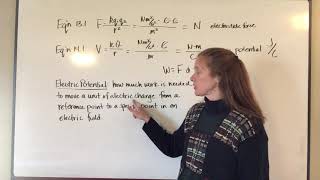 Eq'n 13.1 F = kq₁q₂/r² = Nm²/C² · C · C / m² = N electrostatic force
Eq'n 14.1 V = kQ/r = Nm²/C² · C / m = N·m/C potential 1/C
W = F d
Electric Potential: how much work is needed
to move a unit of electric charge from a
reference point to a point in an
electric field